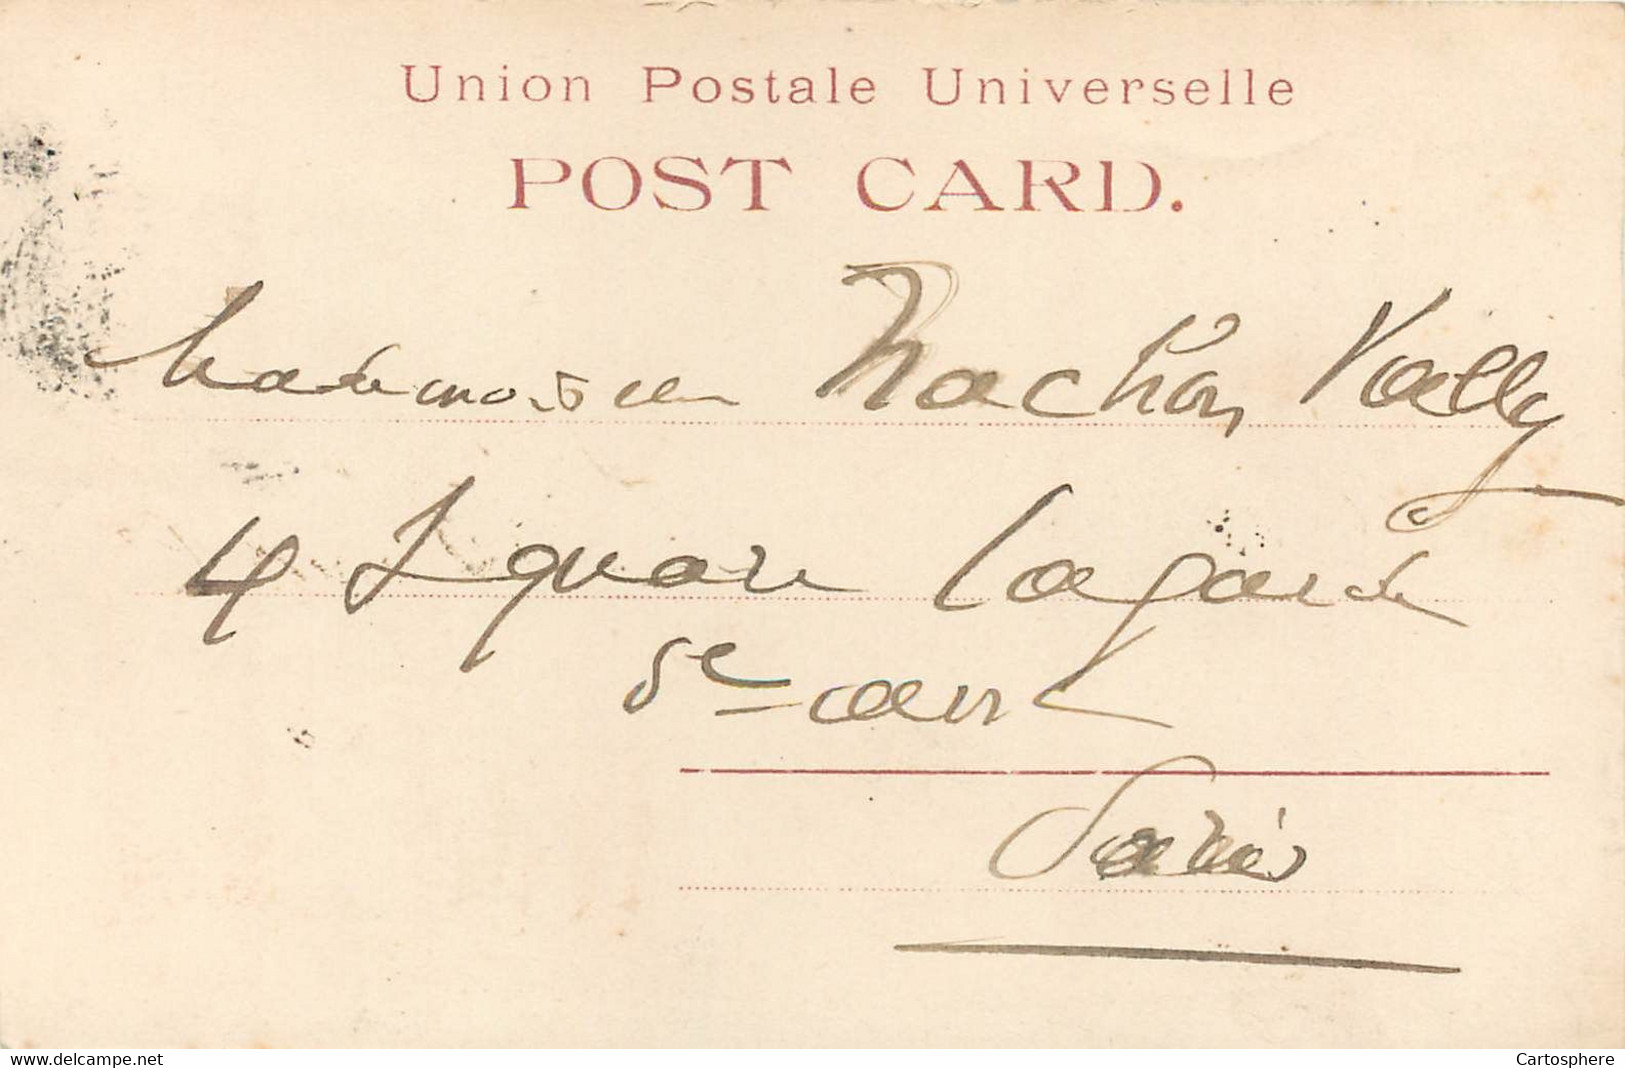 Union Postale Universelle
POST CARD.
Mademoiselle Vally
4 Square Lagarde
5e arrt
Paris
www.delcampe.net
Cartosphere